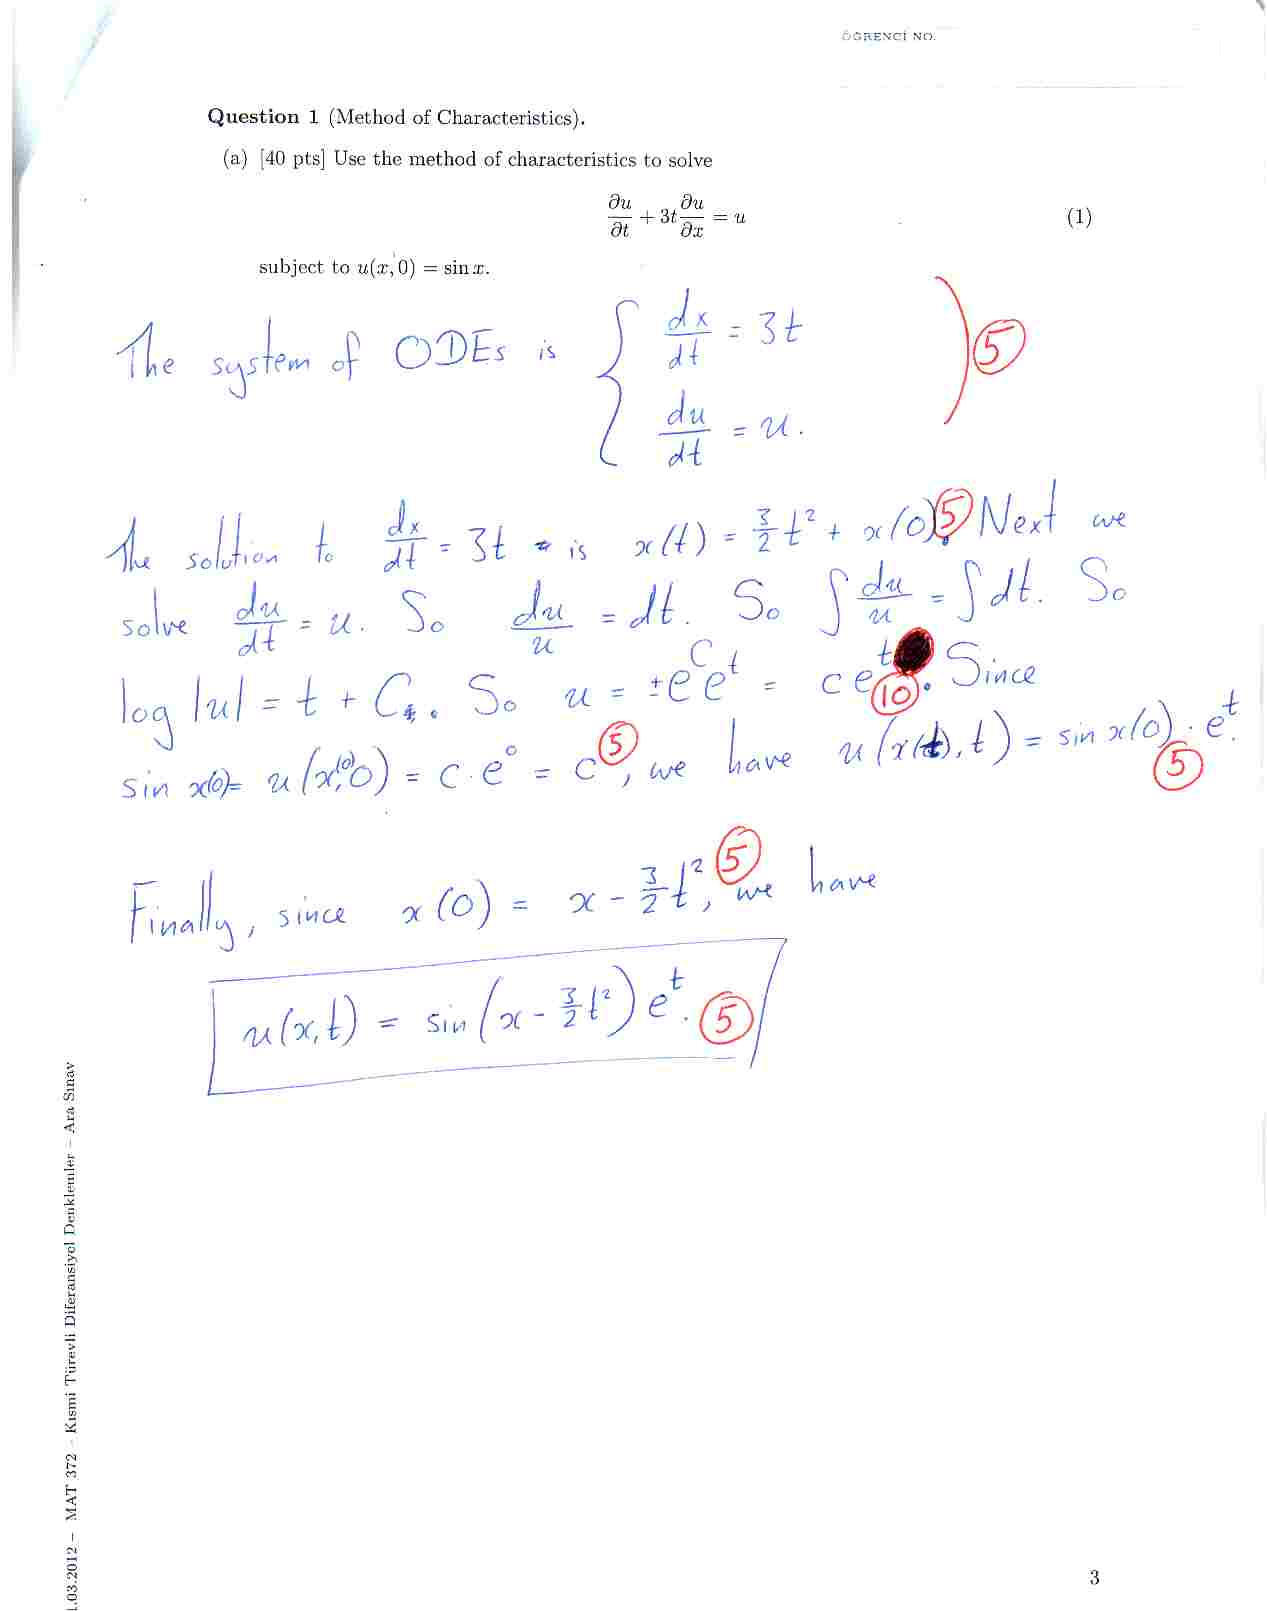 ÖĞRENCİ NO.
Question 1 (Method of Characteristics).
(a) [40 pts] Use the method of characteristics to solve
∂u/∂t + 3t ∂u/∂x = u (1)
subject to u(x, 0) = sin x.
The system of ODEs is { dx/dt = 3t
du/dt = u. 5
The solution to dx/dt = 3t is x(t) = 3/2 t² + x(0). 5 Next we
solve du/dt = u. So du/u = dt. So ∫ du/u = ∫ dt. So
log |u| = t + C. So u = ±e^C e^t = c e^t. 10 Since
sin x(0) = u(x(0), 0) = c · e⁰ = c 5, we have u(x(t), t) = sin x(0) · e^t. 5
Finally, since x(0) = x - 3/2 t², 5 we have
u(x,t) = sin(x - 3/2 t²) e^t. 5
.03.2012 – MAT 372 – Kısmi Türevli Diferansiyel Denklemler – Ara Sınav
3